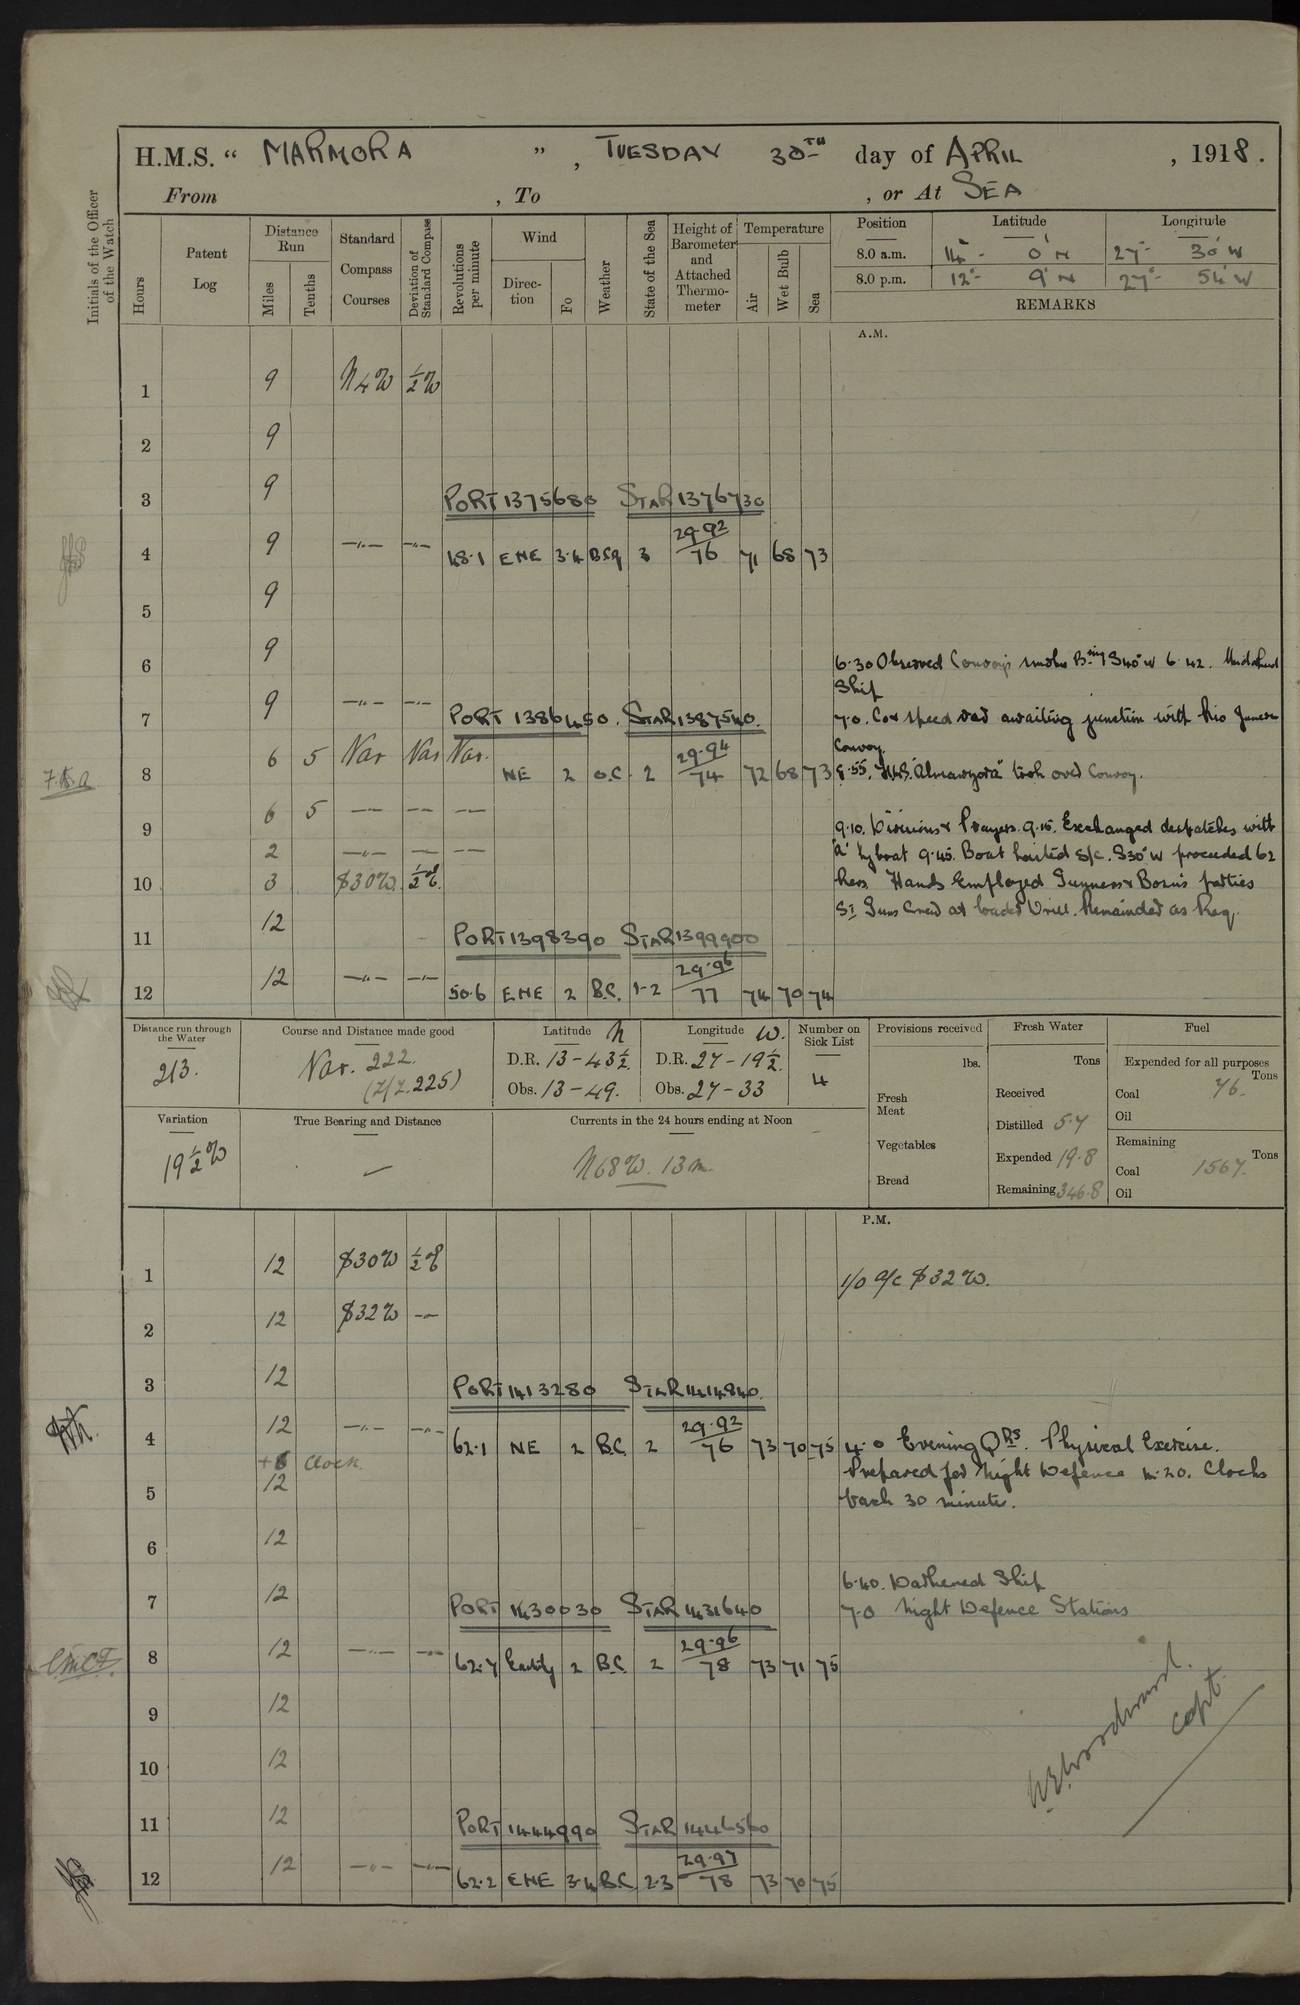 H.M.S. “ MARMORA ” , TUESDAY 30TH day of APRIL , 1918.
From , To , or At SEA
Initials of the Officer of the Watch
Hours
Patent Log
Distance Run
Miles
Tenths
Standard Compass Courses
Deviation of Standard Compass
Revolutions per minute
Wind
Direction
Fo
Weather
State of the Sea
Height of Barometer and Attached Thermometer
Temperature
Air
Wet Bulb
Sea
Position Latitude Longitude
8.0 a.m. 14° - 0' N 27° - 30' W
8.0 p.m. 12° - 9' N 27° - 54' W
REMARKS
A.M.
1 9 N4W ½W
2 9
3 9 PORT 1375680 STAR 1376730
4 9 —"— —"— 48.1 ENE 3.4 B.C.q 3 29.92/76 71 68 73
5 9
6 9
6.30 Observed Convoy's smoke Bring S40°W 6.42.
Ship
7 9 —"— —"— PORT 1386450. STAR 1387540.
7.0. Co & speed req awaiting junction with Rio Janeiro
Convoy.
8 6 5 Var Var Var. NE 2 O.C. 2 29.94/74 72 68 73
8.55. HMS "Almanzora" took over Convoy.
9 6 5 — — —
9.10. Divisions & Prayers. 9.15. Exchanged despatches with
"A" by boat 9.45. Boat hoisted S/C. S30°W proceeded 62
2 —"— — —
10 3 S30W ½E
Revs Hands Employed Gunners & Bosun's parties
Guns Crew at loader Drill. Remainder as Req.
11 12 PORT 1398390 STAR 1399900
12 12 —"— —"— 50.6 ENE 2 B.C. 1-2 29.96/77 74 70 74
Distance run through the Water
213.
Course and Distance made good
Var. 222.
(Z/Z.225)
Latitude N
D.R. 13-43½.
Obs. 13-49.
Longitude W.
D.R. 27-19½.
Obs. 27-33
Number on Sick List
4
Provisions received
lbs.
Fresh Meat
Vegetables
Bread
Fresh Water
Tons
Received
Distilled 5.7
Expended 19.8
Remaining 346.8
Fuel
Expended for all purposes
Tons
Coal 76.
Oil
Remaining
Tons
Coal 1567.
Oil
Variation
19½W
True Bearing and Distance
—
Currents in the 24 hours ending at Noon
N68W. 13m.
P.M.
1 12 S30W ½E
1/0 a/c S32W.
2 12 S32W —"—
3 12 PORT 1413280 STAR 1414840.
4 12 —"— —"— 62.1 NE 2 B.C. 2 29.92/76 73 70 75
4.0 Evening Qrs. Physical Exercise.
+6 Clock.
Prepared for Night Defence 4.20. Clocks
5 12
back 30 minutes.
6 12
6.40. Darkened Ship
7 12 PORT 1430030 STAR 1431640
7.0 Night Defence Stations
8 12 —"— —"— 62.7 Easterly 2 B.C. 2 29.96/78 73 71 75
9 12
10 12
11 12 PORT 1444990 STAR 1446560
12 12 —"— —"— 62.2 ENE 3.4 B.C. 2.3 29.97/78 73 70 75
Woodward.
Capt.